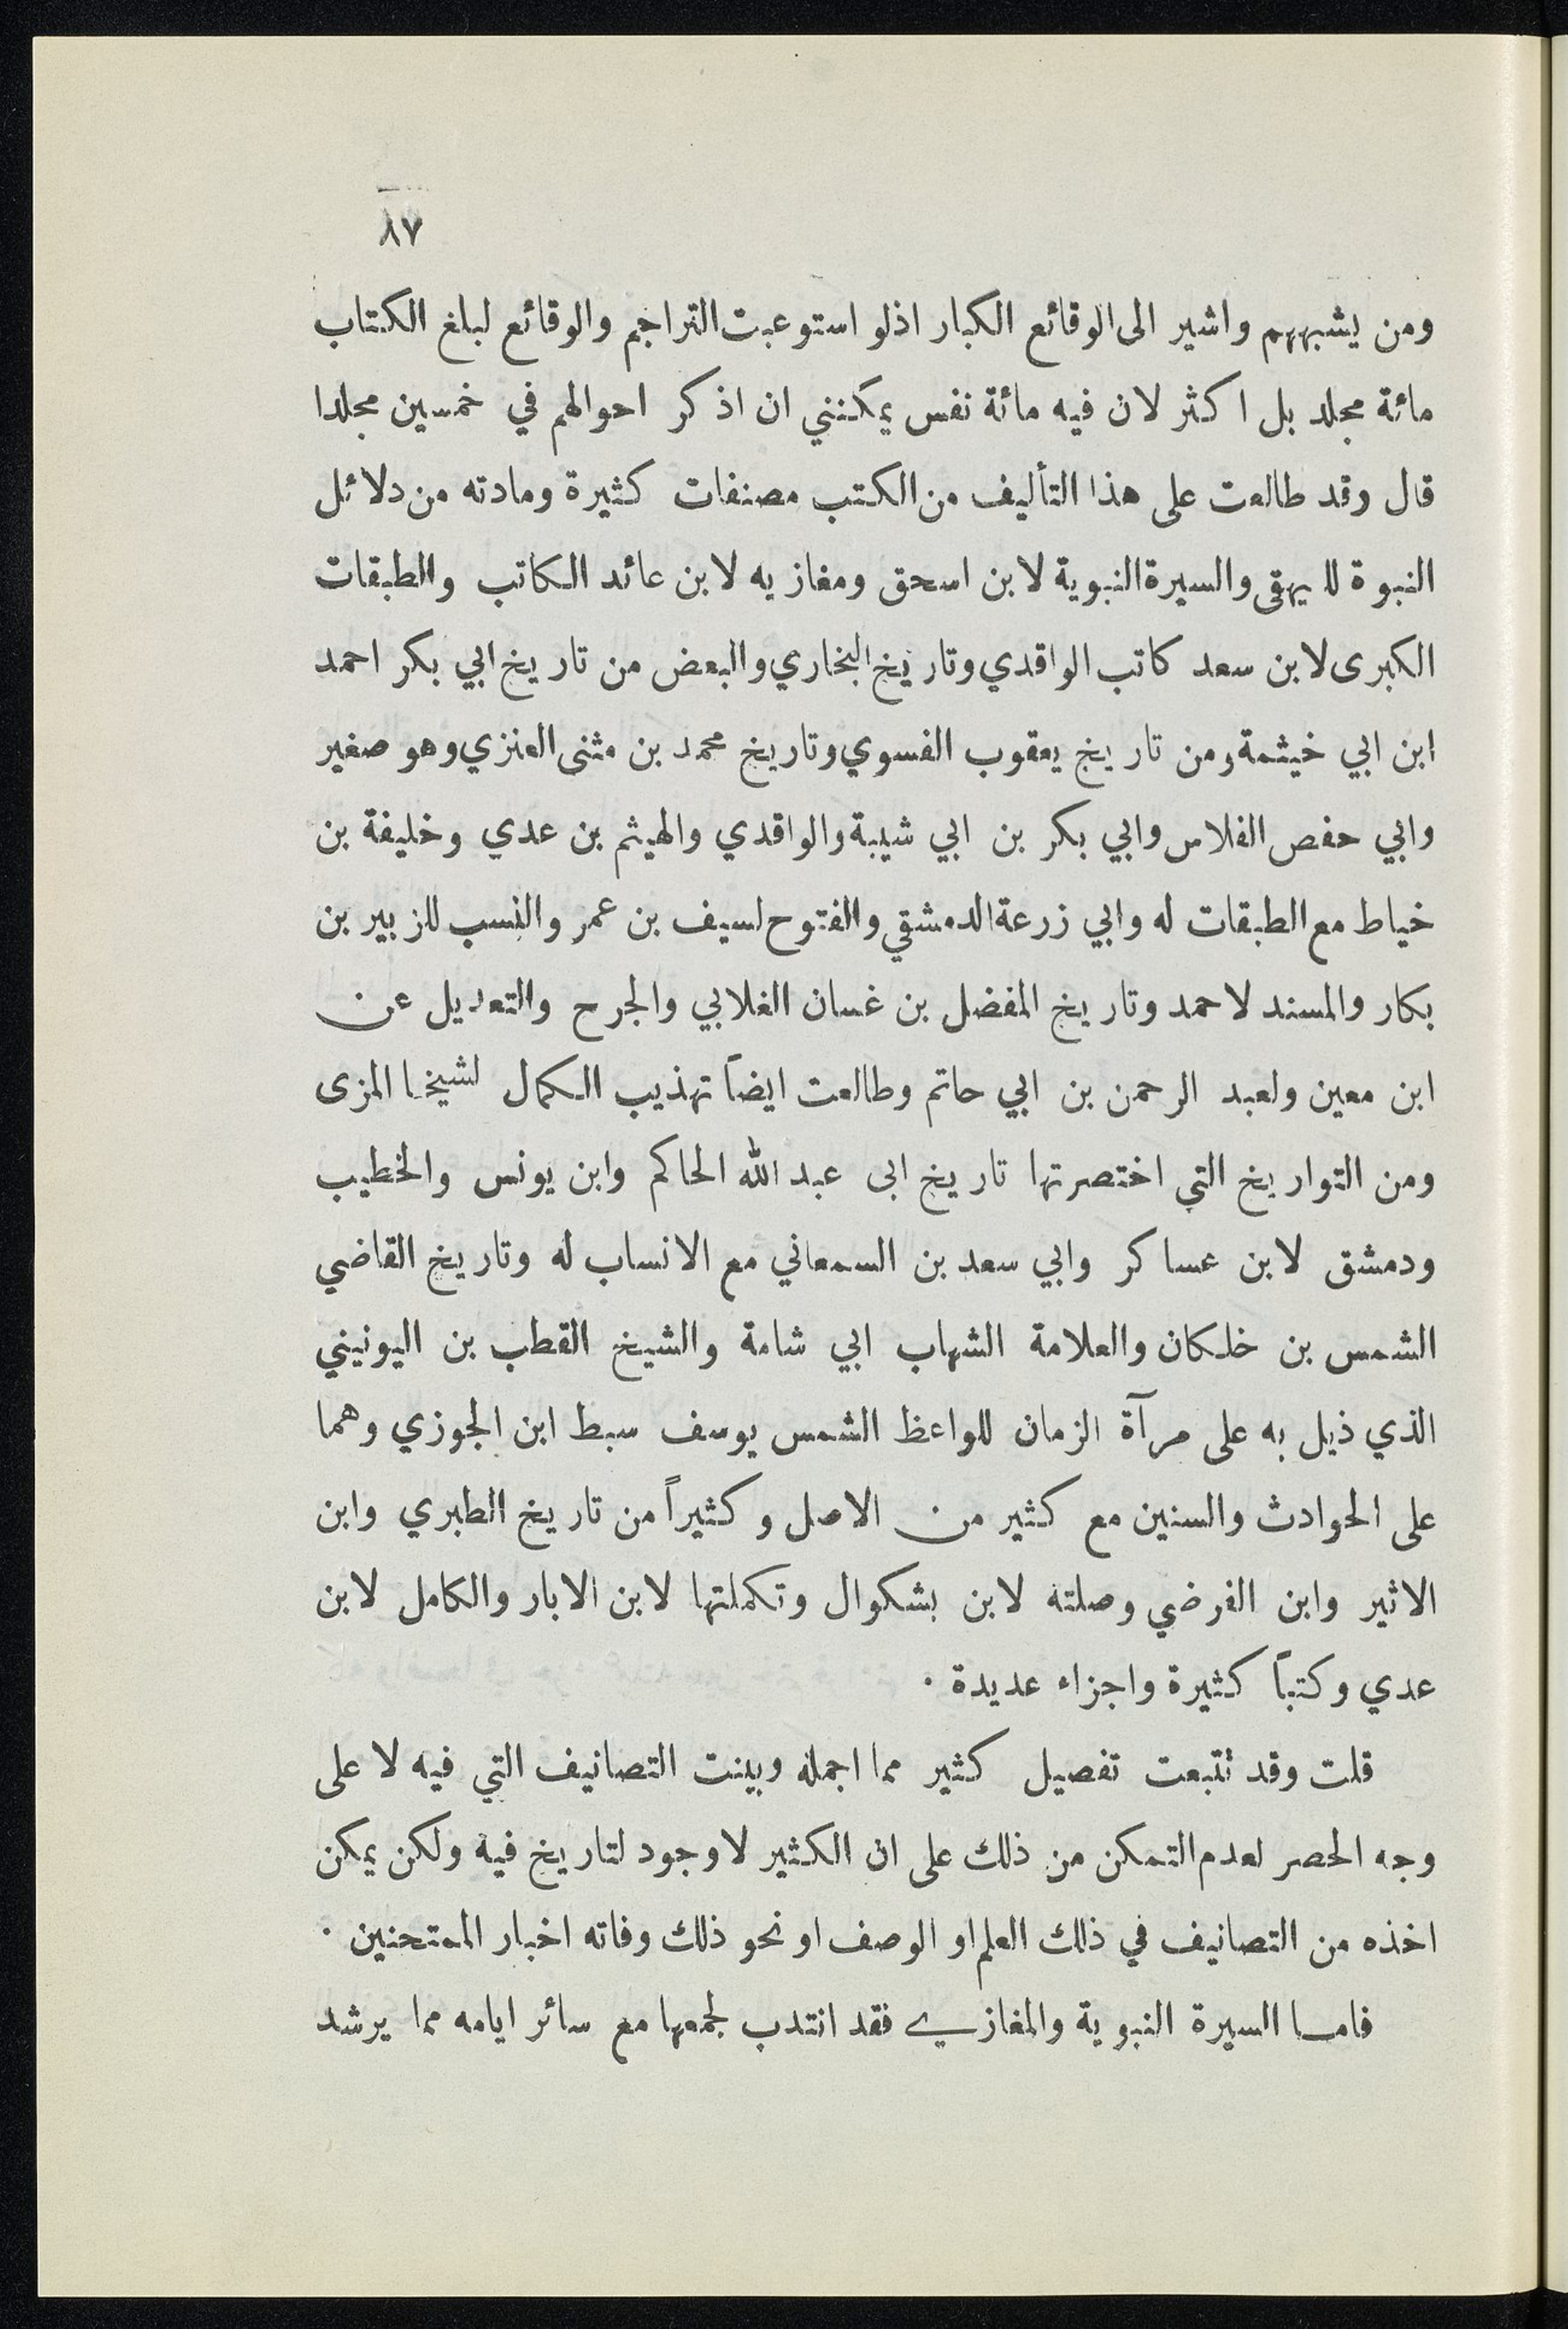 ٨٧
ومن يشبههم واشير الى الوقائع الكبار اذلو استوعبت التراجم والوقائع لبلغ الكتاب
مائة مجلد بل اكثر لان فيه مائة نفس يمكنني ان اذكر احوالهم في خمسين مجلدا
قال وقد طالعت على هذا التأليف من الكتب مصنفات كثيرة ومادته من دلائل
النبوة للبيهقى والسيرة النبوية لابن اسحق ومغازيه لابن عائد الكاتب والطبقات
الكبرى لابن سعد كاتب الواقدي وتاريخ البخاري والبعض من تاريخ ابي بكر احمد
ابن ابي خيثمة ومن تاريخ يعقوب الفسوي وتاريخ محمد بن مثنى العنزي وهو صغير
وابي حفص الفلاس وابي بكر بن ابي شيبة والواقدي والهيثم بن عدي وخليفة بن
خياط مع الطبقات له وابي زرعة الدمشقي والفتوح لسيف بن عمر والنسب للزبير بن
بكار والمسند لاحمد وتاريخ المفضل بن غسان الغلابي والجرح والتعديل عن
ابن معين ولعبد الرحمن بن ابي حاتم وطالعت ايضاً تهذيب الكمال لشيخنا المزى
ومن التواريخ التي اختصرتها تاريخ ابى عبد الله الحاكم وابن يونس والخطيب
ودمشق لابن عساكر وابي سعد بن السمعاني مع الانساب له وتاريخ القاضي
الشمس بن خلكان والعلامة الشهاب ابي شامة والشيخ القطب بن اليونيني
الذي ذيل به على مرآة الزمان للواعظ الشمس يوسف سبط ابن الجوزي وهما
على الحوادث والسنين مع كثير من الاصل وكثيراً من تاريخ الطبري وابن
الاثير وابن الفرضي وصلته لابن بشكوال وتكملتها لابن الابار والكامل لابن
عدي وكتباً كثيرة واجزاء عديدة ٠
قلت وقد تتبعت تفصيل كثير مما اجمله وبينت التصانيف التي فيه لا على
وجه الحصر لعدم التمكن من ذلك على ان الكثير لا وجود لتاريخ فيه ولكن يمكن
اخذه من التصانيف في ذلك العلم او الوصف او نحو ذلك وفاته اخبار الممتحنين ٠
فاما السيرة النبوية والمغازي فقد انتدب لجمعها مع سائر ايامه مما يرشد